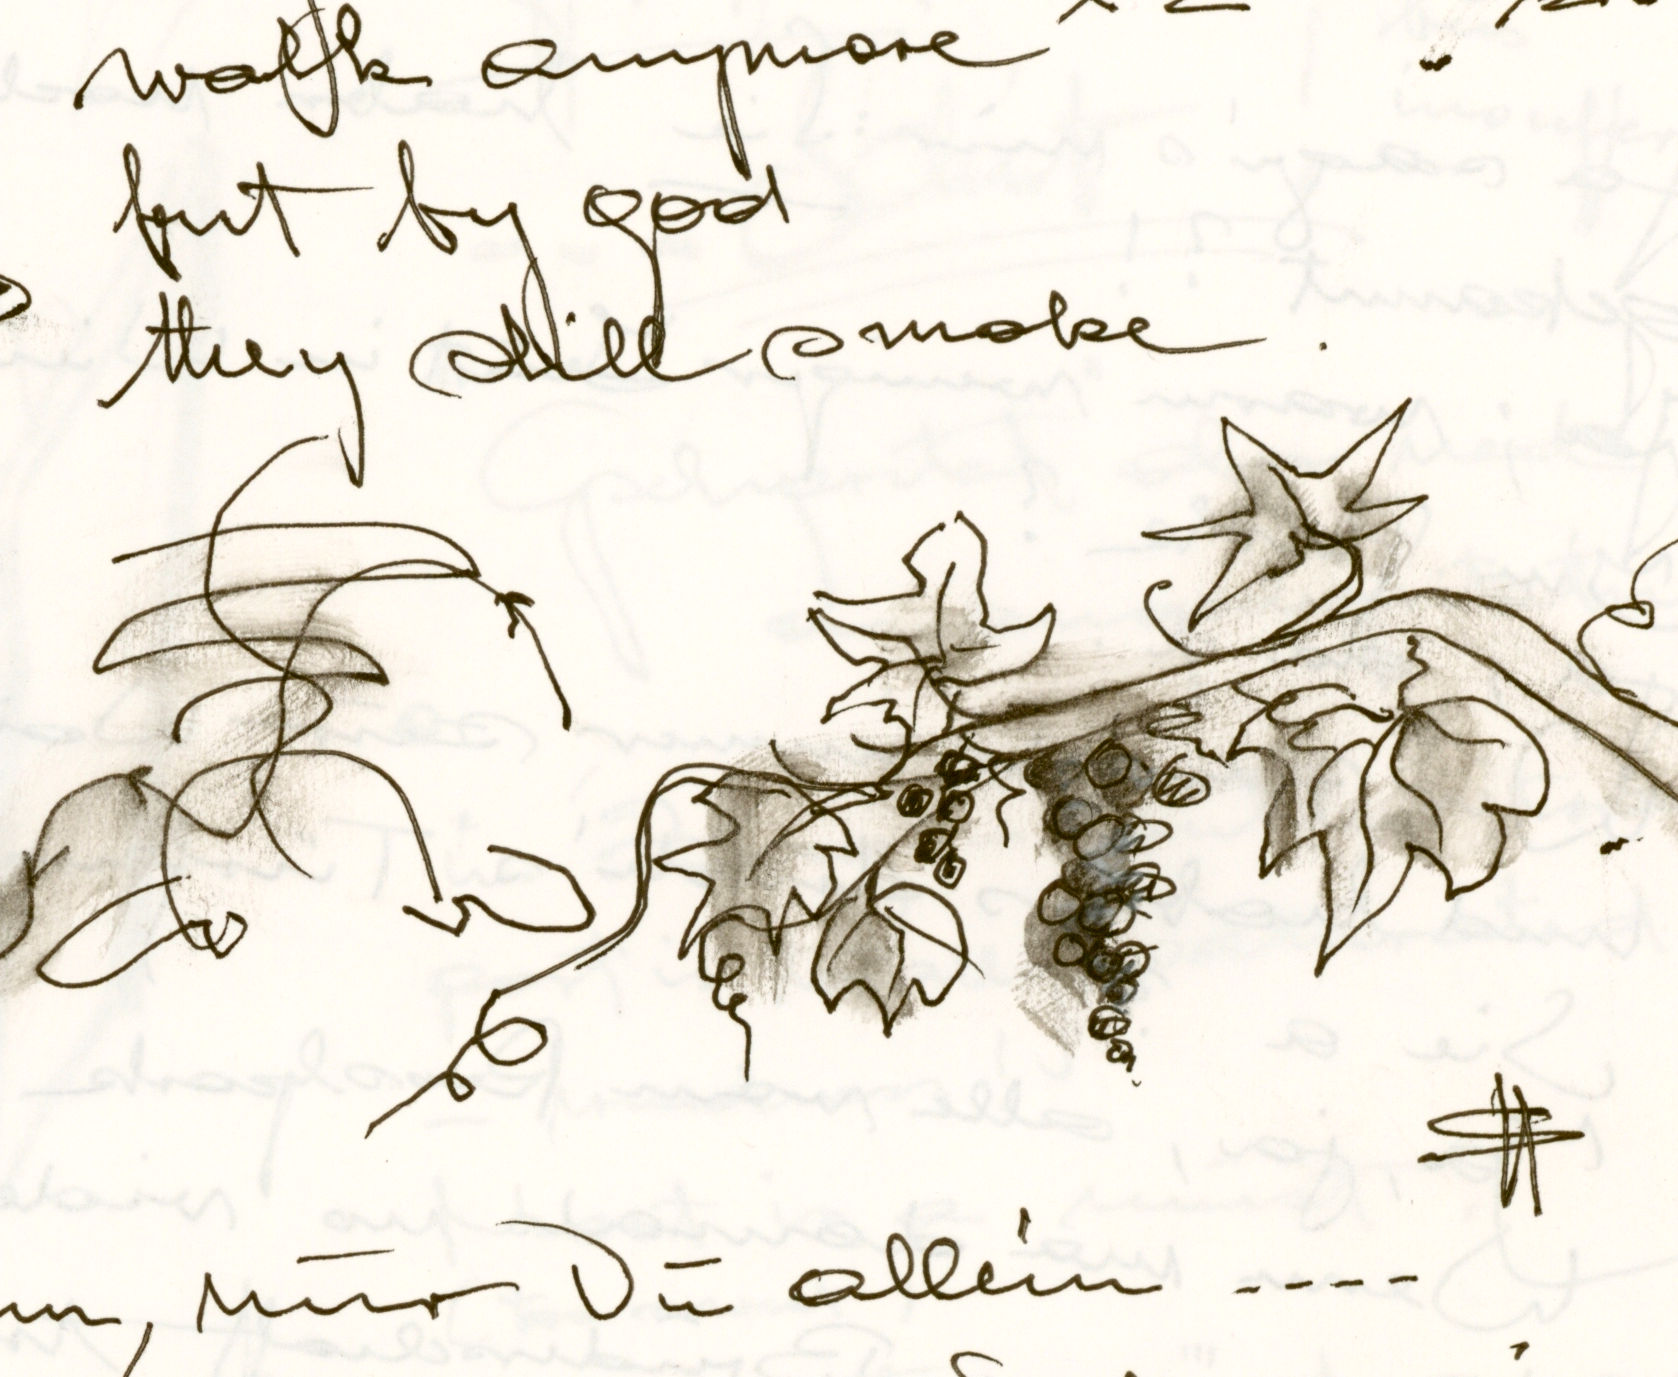 walk anymore
but by god
they still smoke.
nur Du allein ----